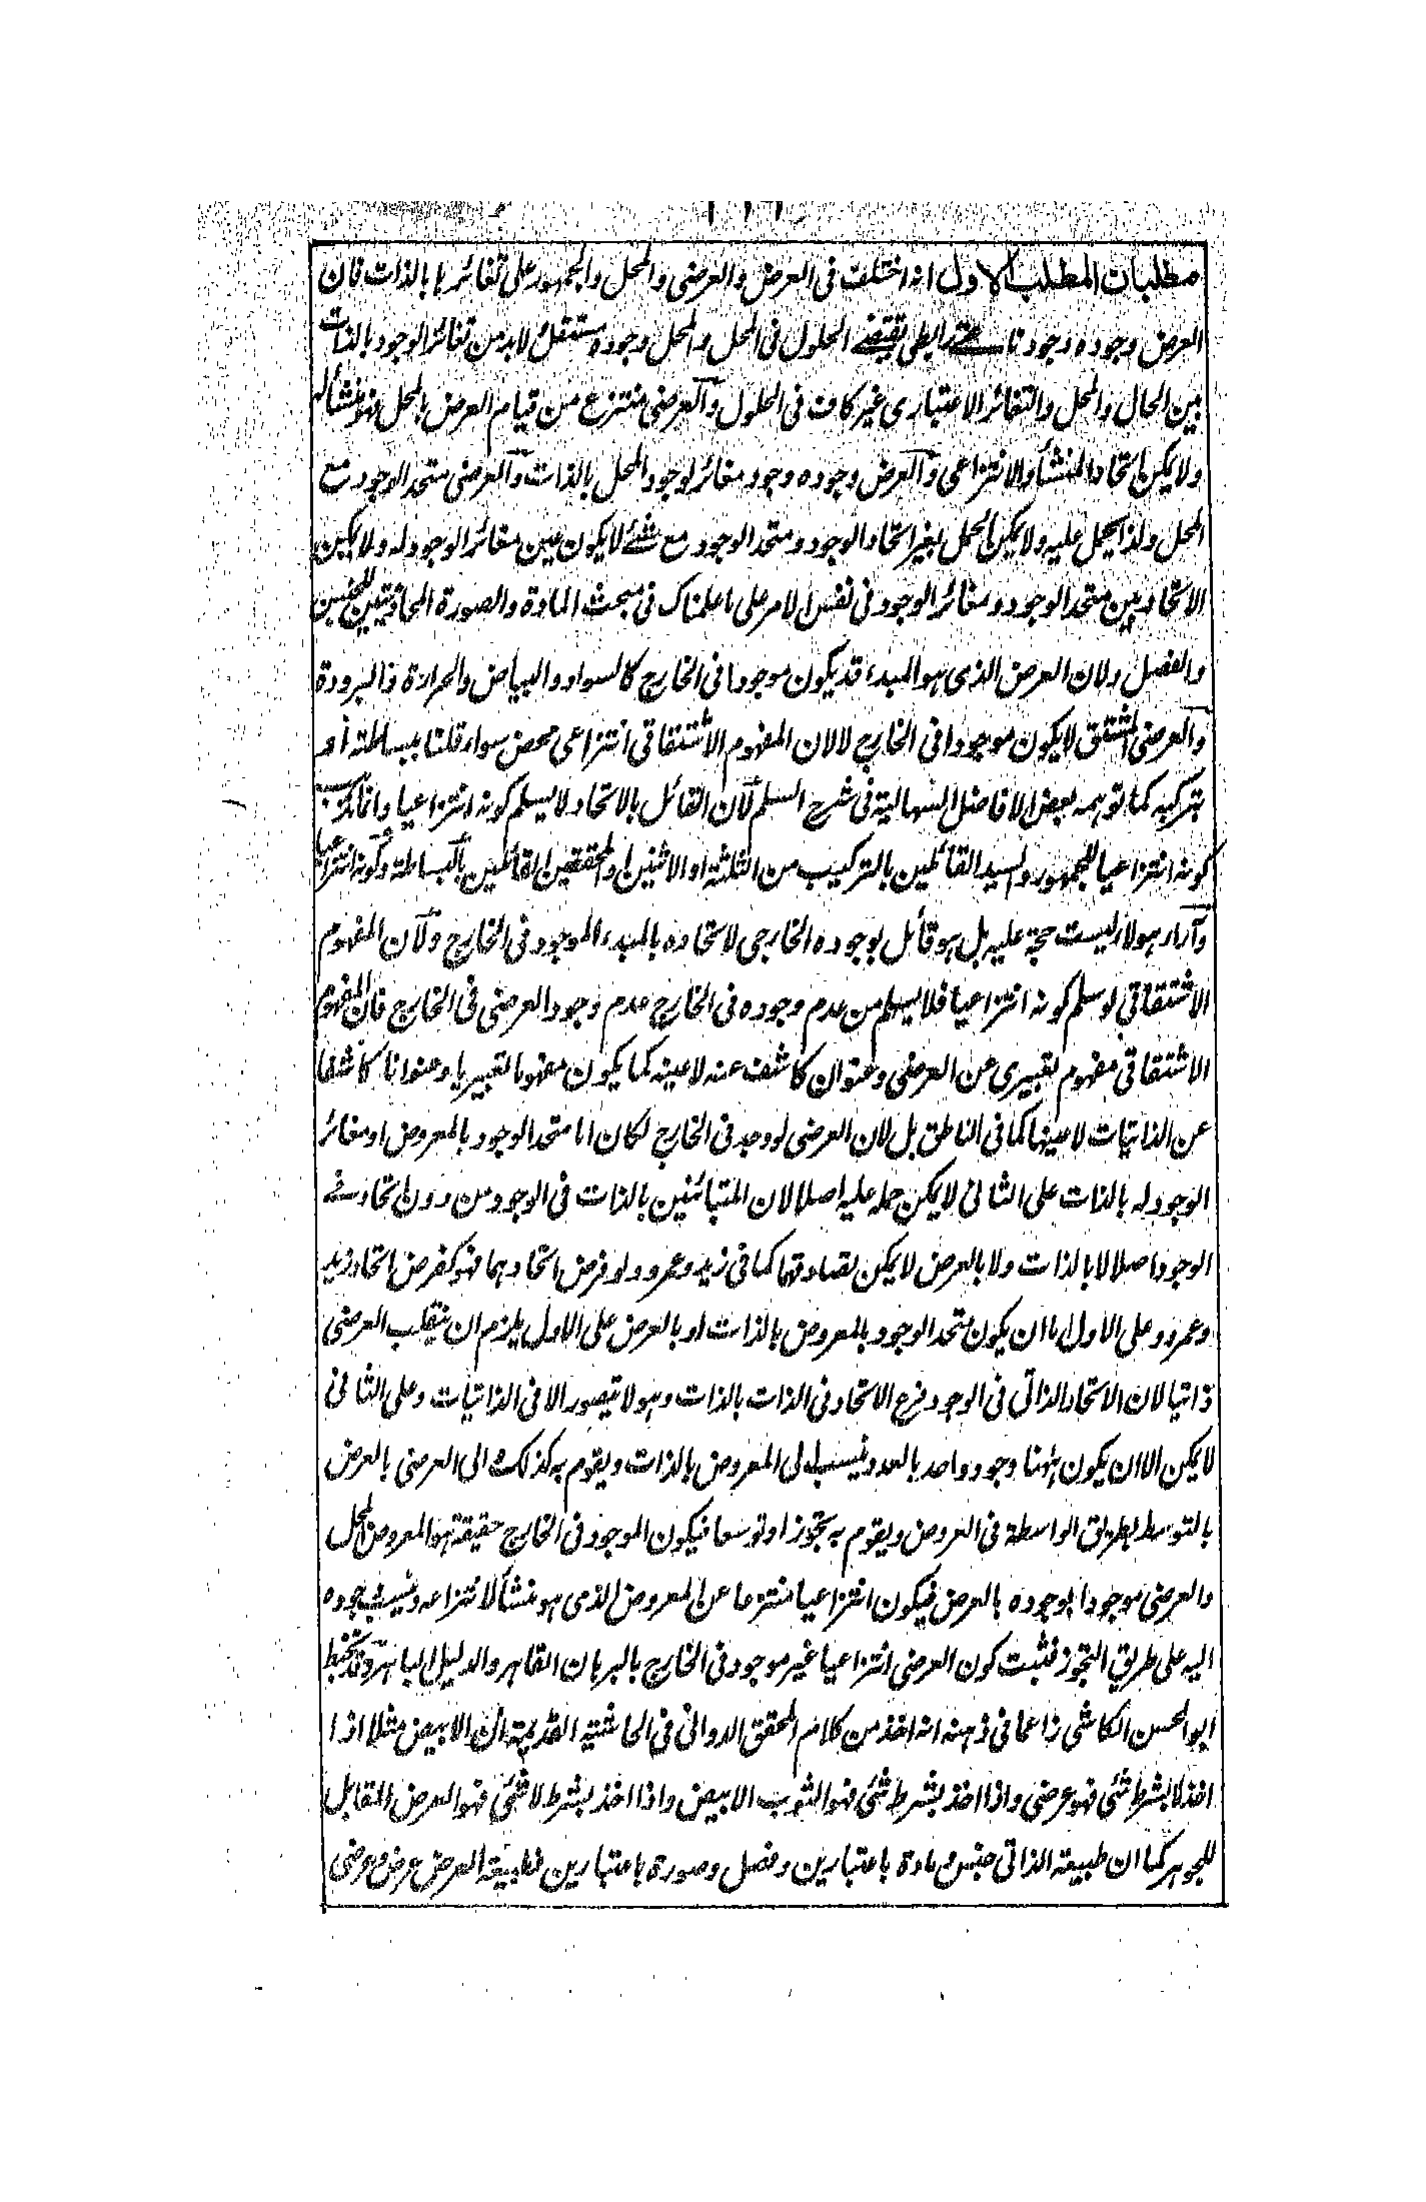 مطلبان المطلب الاول انه اختلف فى العرض والعرضى والمحل والجمهور على تغائرها بالذات فان
العرض وجوده وجود ناعتے رابطى يقتضے الحلول فى المحل والمحل وجوده مستقل لابد من تغائر الوجود بالذات
بين الحال والمحل والتغائر الاعتبارى غير كاف فى الحلول والعرضى منتزع من قيام العرض بالمحل فهو منشأله
ولا يمكن اتحاد المنشأ والانتزاعى والعرض وجوده وجود مغائر لوجود المحل بالذات والعرضى متحد الوجود مع
المحل ولذا يحمل عليه ولا يمكن الحمل بغير اتحاد الوجود ومتحد الوجود مع شئے لا يكون عين مغائر الوجود له ولا يمكن
الاتحاد بين متحد الوجود ومغائر الوجود فى نفس الامر على ما علمناك فى مبحث المادة والصورة المحاذيتين للجنس
والفصل ولان العرض الذى هو المبدء قد يكون موجودا فى الخارج كالسواد والبياض والحرارة والبرودة
والعرضى المشتق لا يكون موجودا فى الخارج لا لان المفهوم الاشتقاقى انتزاعى محض سواء قلنا ببساطته او
بتركبه كما توهمه بعض الافاضل السهالية فى شرح السلم لان القائل بالاتحاد لا يسلم كونه انتزاعيا وانما
كونه انتزاعيا للجمهور والسيد القائلين بالتركيب من الثلثة او الاثنين والمحققين القائلين بالبساطة وكونه انتزاعيا
وآراء هولاء ليست حجة عليه بل هو قائل بوجوده الخارجى لاتحاده بالمبدء الموجود فى الخارج ولان المفهوم
الاشتقاقى لو سلم كونه انتزاعيا فلا يسلم من عدم وجوده فى الخارج عدم وجود العرضى فى الخارج فان المفهوم
الاشتقاقى مفهوم تعبيرى عن العرضى وعنوان كاشف عنه لا عينه كما يكون مفهوما تعبيريا وعنوانا كاشفا
عن الذاتيات لا عينها كما فى الناطق بل لان العرضى لو وجد فى الخارج لكان اما متحد الوجود بالمعروض او مغائر
الوجود له بالذات على الثانى لا يمكن حمله عليه اصلا لان المتبائنين بالذات فى الوجود من دون اتحاد فے
الوجود اصلا لا بالذات ولا بالعرض لا يمكن تصادقهما كما فى زيد وعمرو ولو فرض اتحادهما فهو كفرض اتحاد زيد
وعمرو وعلى الاول اما ان يكون متحد الوجود بالمعروض بالذات او بالعرض على الاول يلزم ان ينقلب العرضى
ذاتيا لان الاتحاد الذاتى فى الوجود فرع الاتحاد فى الذات بالذات وهو لا يتصور الا فى الذاتيات وعلى الثانى
لا يمكن الا ان يكون ههنا وجود واحد بالعدد ينسب الى المعروض بالذات ويقوم به كذلك الى العرضى بالعرض
بالتوسط بطريق الواسطة فى العروض ويقوم به تجوزا وتوسعا فيكون الموجود فى الخارج حقيقة هو المعروض المحل
والعرضى موجودا بوجوده بالعرض فيكون انتزاعيا منتزعا عن المعروض الذى هو منشأ لانتزاعه وينسب وجوده
اليه على طريق التجوز فثبت كون العرضى انتزاعيا غير موجود فى الخارج بالبرهان القاهر والدليل الباهر وقد تخبط
ابو الحسن الكاشى زاعما فى ذهنه انه اخذ من كلام المحقق الدوانى فى الحاشية القديمة ان الابيض مثلا اذا
اخذ لا بشرط شئى فهو عرضى واذا اخذ بشرط شئى فهو الثوب الابيض واذا اخذ بشرط لا شئى فهو العرض المقابل
للجوهر كما ان طبيعة الذاتى جنس ومادة باعتبارين وفصل وصورة باعتبارين فطبيعة العرض عرض وعرضى